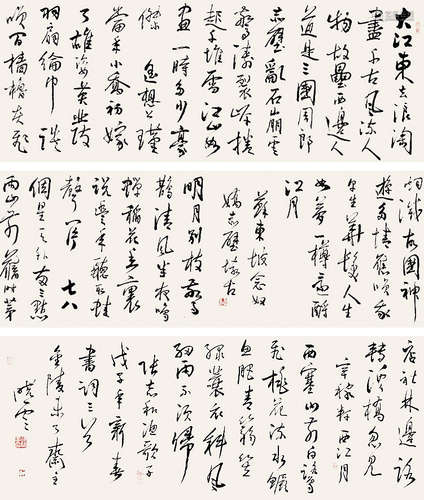 大江東去浪淘
盡千古風流人
物故壘西邊人
道是三國周郎
赤壁亂石崩雲
驚濤裂岸捲
起千堆雪江山如
畫一時多少豪
傑遙想公瑾
當年小喬初嫁
了雄姿英發
羽扇綸巾談
笑間檣櫓灰飛
煙滅故國神
遊多情應笑我
早生華髮人生
如夢一樽還酹
江月
蘇東坡念奴
嬌赤壁懷古
明月別枝驚
鵲清風半夜鳴
蟬稻花香裏
說豐年聽取蛙
聲一片七八
個星天外兩點
雨山前舊時茅
店社林邊路
轉溪橋忽見
辛稼軒西江月
西塞山前白鷺
飛桃花流水鱖
魚肥青箬笠
綠蓑衣斜風
細雨不須歸
張志和漁歌子
戊子年新春
書詞三首
金陵齋主
曉雲